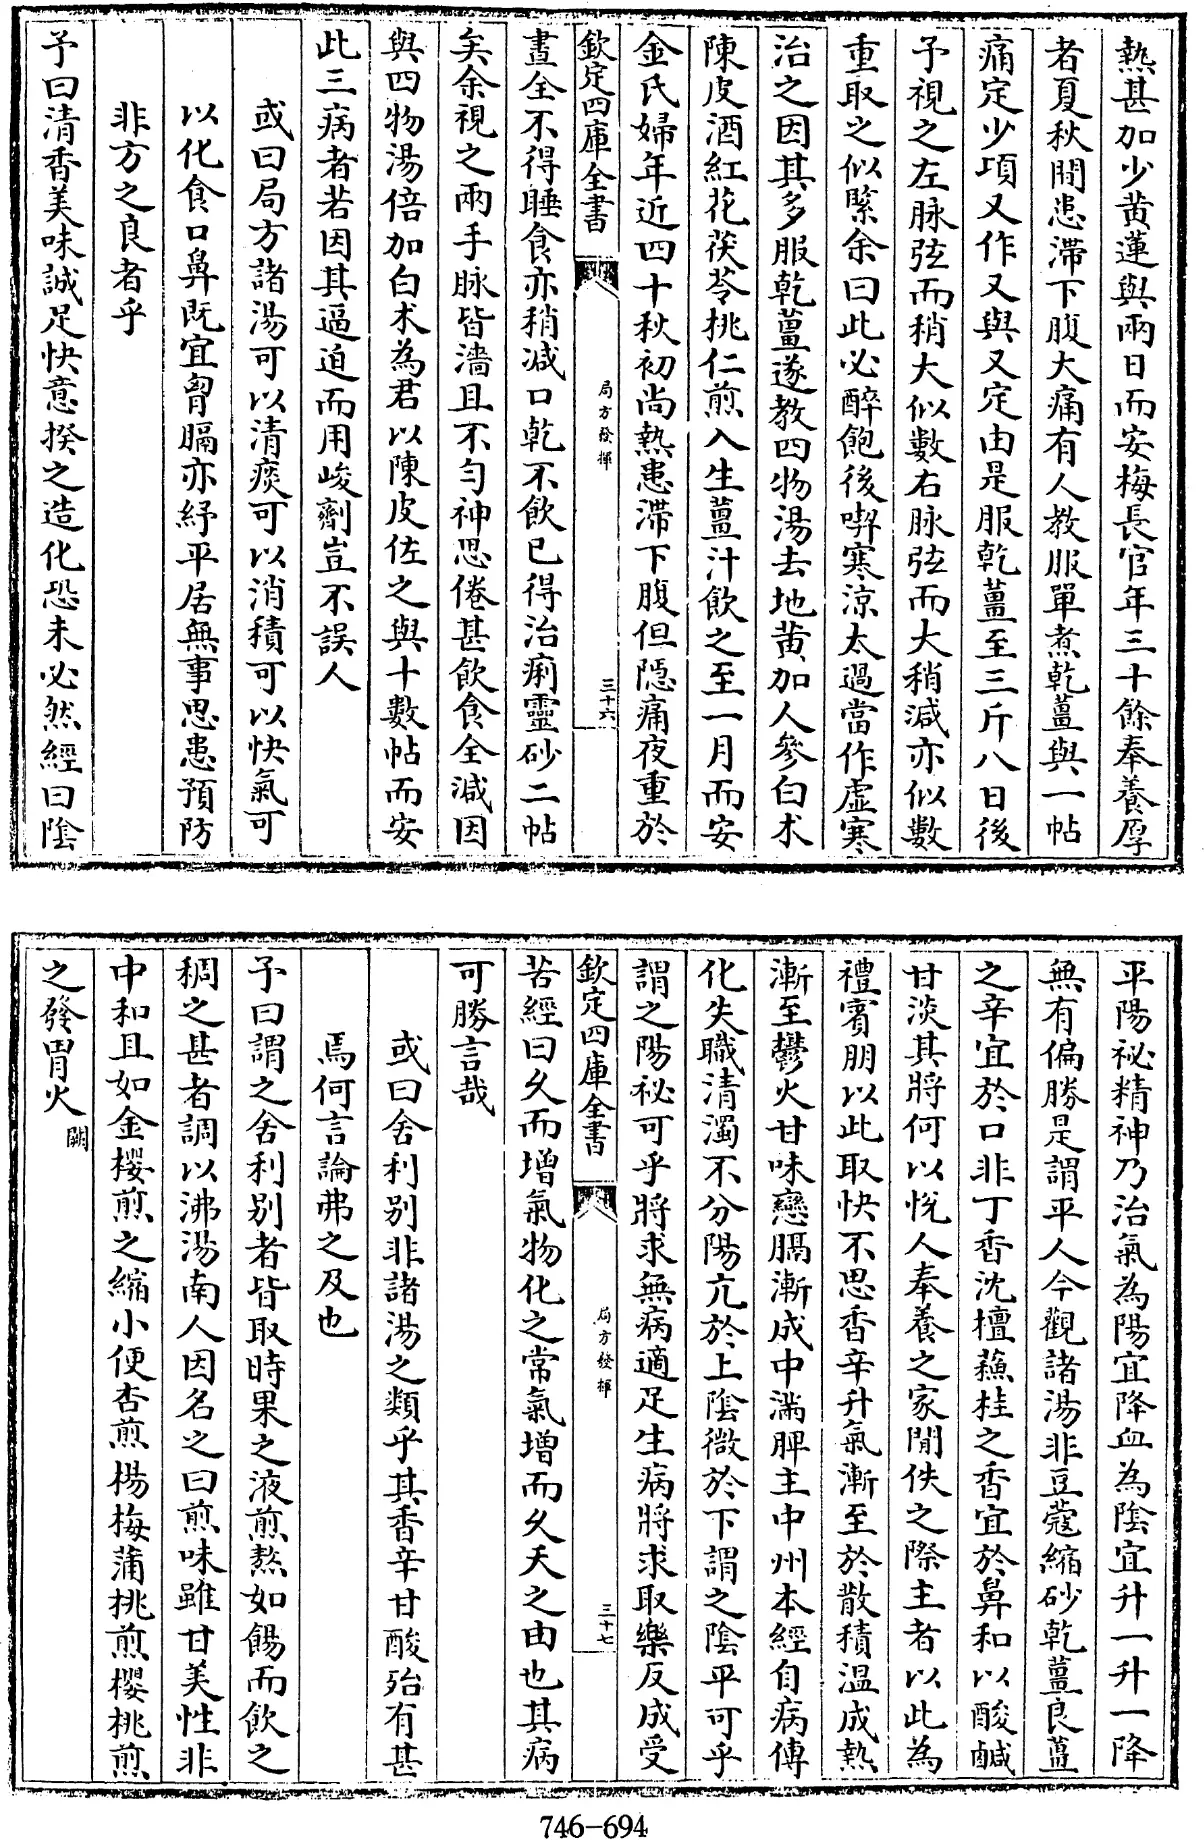 熱甚加少黄蓮與兩日而安梅長官年三十餘奉養厚
者夏秋間患滯下腹大痛有人教服單煮乾薑與一帖
痛定少項又作又與又定由是服乾薑至三斤八日後
予視之左脉弦而稍大似數右脉弦而大稍減亦似數
重取之似緊余曰此必醉飽後喫寒涼太過當作虛寒
治之因其多服乾薑遂教四物湯去地黄加人參白术
陳皮酒紅花茯苓桃仁煎入生薑汁飲之至一月而安
金氏婦年近四十秋初尚熱患滯下腹但隱痛夜重於
欽定四庫全書
局方發揮
三十六
晝全不得睡食亦稍减口乾不飲已得治痢靈砂二帖
矣余視之兩手脉皆濇且不勻神思倦甚飲食全減因
與四物湯倍加白术為君以陳皮佐之與十數帖而安
此三病者若因其逼迫而用峻劑豈不誤人
或曰局方諸湯可以清痰可以消積可以快氣可
以化食口鼻既宜胷膈亦紓平居無事思患預防
非方之良者乎
予曰清香美味誠足快意揆之造化恐未必然經曰陰
平陽祕精神乃治氣為陽宜降血為陰宜升一升一降
無有偏勝是謂平人今觀諸湯非豆蔻縮砂乾薑良薑
之辛宜於口非丁香沈檀蘓桂之香宜於鼻和以酸鹹
甘淡其將何以悦人奉養之家閒佚之際主者以此為
禮賓朋以此取快不思香辛升氣漸至於散積温成熱
漸至鬱火甘味戀膈漸成中滿脾主中州本經自病傳
化失職清濁不分陽亢於上陰微於下謂之陰平可乎
謂之陽祕可乎將求無病適足生病將求取樂反成受
欽定四庫全書
局方發揮
三十七
苦經曰久而增氣物化之常氣增而久夭之由也其病
可勝言哉
或曰舍利别非諸湯之類乎其香辛甘酸殆有甚
焉何言論弗之及也
予曰謂之舍利别者皆取時果之液煎熬如餳而飲之
稠之甚者調以沸湯南人因名之曰煎味雖甘美性非
中和且如金櫻煎之縮小便杏煎楊梅蒲桃煎櫻桃煎
之發胃火闕
746-694